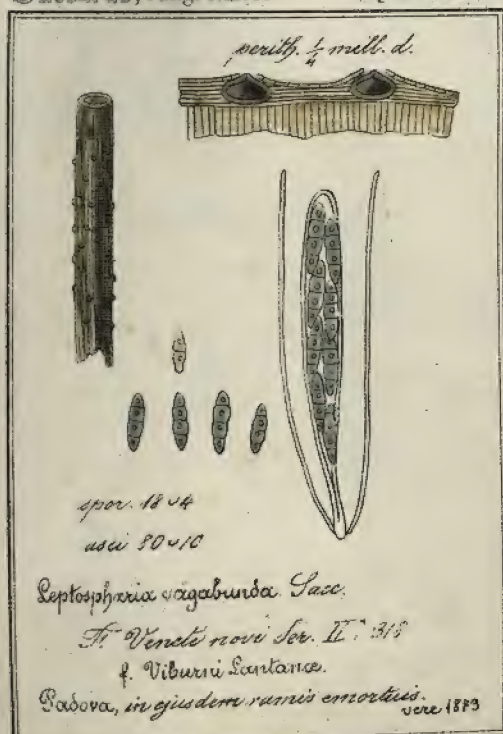 perith. 1/4 mill. d.
spor. 18 ⌣ 4
asci 80 ⌣ 10
Leptosphæria vagabunda Sacc.
F. Venet. novi Ser. II. 318
f. Viburni Lantanæ.
Padova, in ejusdem ramis emortuis.
vere 1873